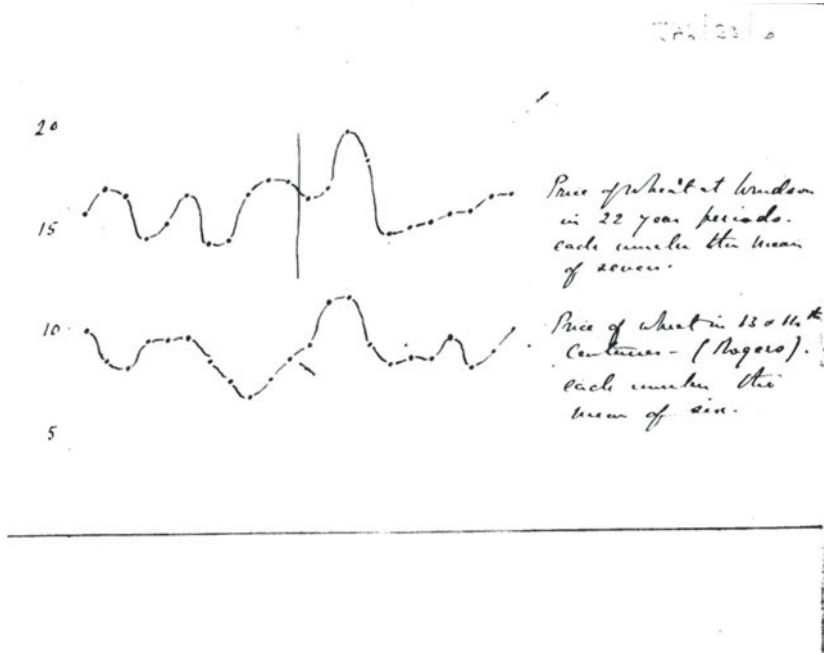 20
15
10
5
Price of wheat at Windsor
in 22 year periods.
each number the mean
of seven.
Price of wheat in 13 & 14th
Centuries - (Rogers).
each number the
mean of six.